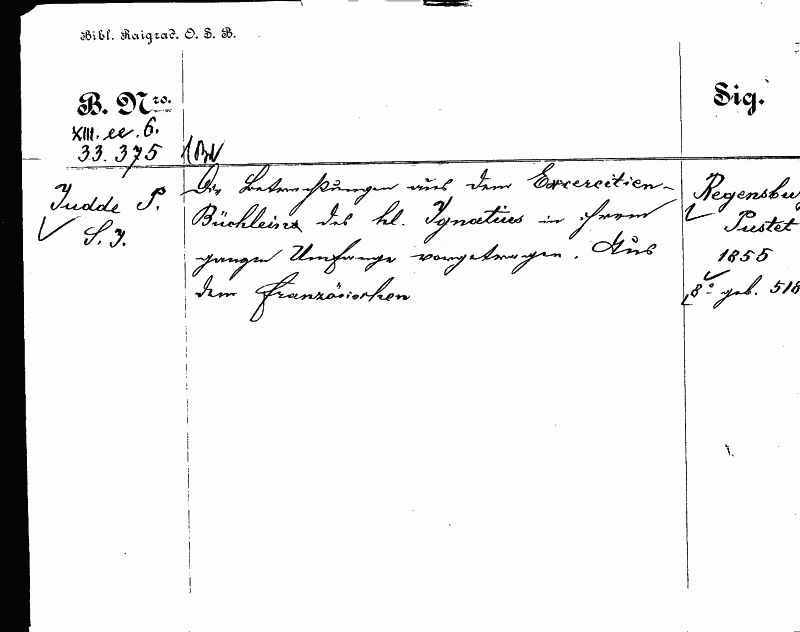 Bibl. Raigrad. O. S. B.
B. Nro.
Sig.
XIII. ee. 6.
33.375
Judde P.
S. J.
Die Betrachtungen aus dem Excercitien-
Büchleins des hl. Ignatius in ihrem
ganzen Umfange vorgetragen. Aus
dem französischen
Regensbu
Pustet
1855
8° geb. 518